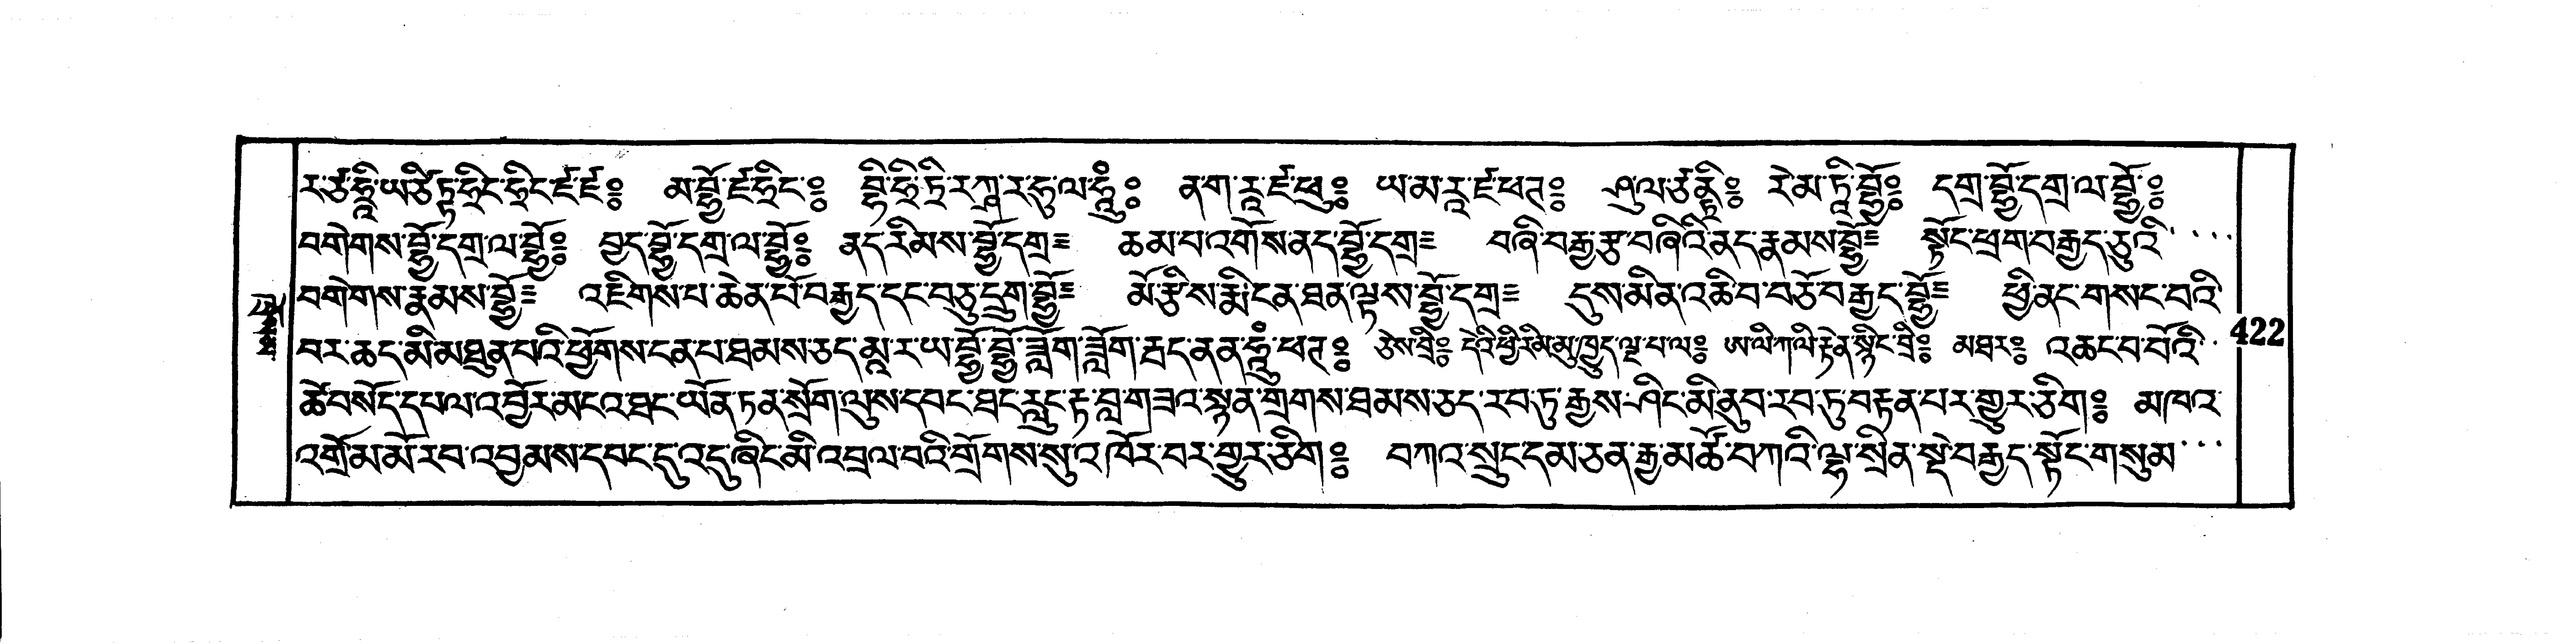 ར་ཙ་ཧྲི་ཡ་ཙིཏྟ་ཧྲིང་ཧྲིང་ཛ་ཛ༔ མ་བྷྱོ་ཛ་ཧྲིང་༔ ན་ག་རྦ་ཛ་ཕྱུ༔ ཡ་མ་རྦ་ཛ་ཕཊ༔ ཤུ་ལ་ཙནྟི༔ རེ་མ་ཏི་བྷྱོ༔ དགྲ་བྷྱོ་དགྲ་ལ་བྷྱོ༔
བགེགས་བྷྱོ་དགྲ་ལ་བྷྱོ༔ བྱད་བྷྱོ་དགྲ་ལ་བྷྱོ༔ ནད་རིམས་བྷྱོ་དགྲ༔ ཆམ་པ་འགོས་ནད་བྷྱོ་དགྲ༔ བཞི་བརྒྱ་རྩ་བཞིའི་ནད་རྣམས་བྷྱོ༔ སྟོང་ཕྲག་བརྒྱད་ཅུའི་
བགེགས་རྣམས་བྷྱོ༔ འཇིགས་པ་ཆེན་པོ་བརྒྱད་དང་བཅུ་དྲུག་བྷྱོ༔ མོ་རྩིས་རྨི་ངན་ཐན་ལྟས་བྷྱོ་དགྲ༔ དུས་མིན་འཆི་བ་བཅོ་བརྒྱད་བྷྱོ༔ ཕྱི་ནང་གསང་བའི་
བར་ཆད་མི་མཐུན་པའི་ཕྱོགས་ངན་པ་ཐམས་ཅད་མཱ་ར་ཡ་བྷྱོ་བྷྱོ་ཟློག་ཟློག་རྦད་ནན་ཧཱུྃ་ཕཊ༔ ཅེས་བྲི༔ དེའི་ཕྱི་རིམ་མུ་ཁྱུད་ལྔ་པ་ལ༔ ཨ་ལི་ཀ་ལི་རྟེན་སྙིང་བྲི༔ མཐར༔ འཆང་བ་པོའི་
ཚེ་བསོད་དཔལ་འབྱོར་མངའ་ཐང་ཡོན་ཏན་སྲོག་ལུས་དབང་ཐང་རླུང་རྟ་བླ་གཟའ་སྙན་གྲགས་ཐམས་ཅད་རབ་ཏུ་རྒྱས་ཤིང་མི་ནུབ་རབ་ཏུ་བརྟན་པར་གྱུར་ཅིག༔ མཁའ་
འགྲོ་མ་མོ་རབ་འབྱམས་དབང་དུ་འདུ་ཞིང་མི་འབྲལ་བའི་གྲོགས་སུ་འཁོར་བར་གྱུར་ཅིག༔ བཀའ་སྲུང་དམ་ཅན་རྒྱ་མཚོ་བཀའི་ལྷ་སྲིན་སྡེ་བརྒྱད་སྟོང་གསུམ་
422